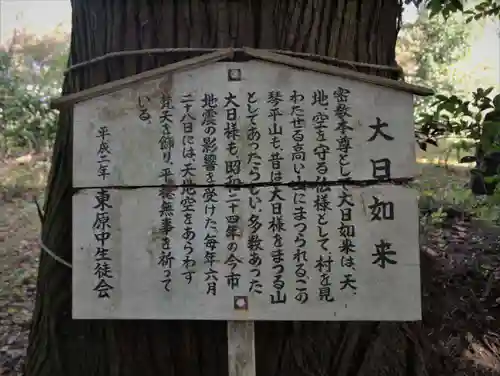 大日如来
密教本尊として大日如来は、天、
地、空を守る仏様として、村を見
わたせる高い山にまつられるこの
琴平山も、昔は大日様をまつる山
としてあったらしい、多数あった
大日様も昭和二十四年の今市
地震の影響を受けた。毎年六月
二十八日には、天地空をあらわす
梵天を飾り、平穏無事を祈って
いる。
平成二年 東原中生徒会